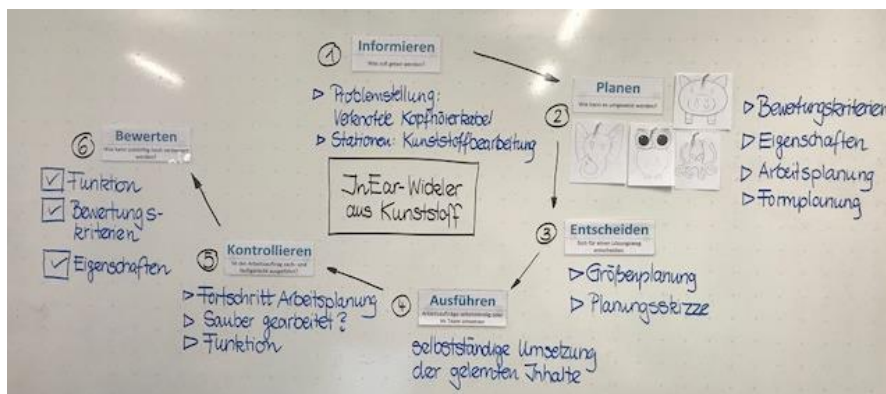 1
Informieren
Was soll getan werden?
▷ Problemstellung:
Verknotete Kopfhörerkabel
▷ Stationen: Kunststoffbearbeitung
2
Planen
Wie kann es umgesetzt werden?
▷ Bewertungskriterien
▷ Eigenschaften
▷ Arbeitsplanung
▷ Formplanung
InEar-Wickler
aus Kunststoff
3
Entscheiden
Sich für einen Lösungsweg
entscheiden
▷ Größenplanung
▷ Planungsskizze
4
Ausführen
Arbeitsaufträge selbstständig oder
im Team umsetzen
selbstständige Umsetzung
der gelernten Inhalte
5
Kontrollieren
Ist der Arbeitsauftrag sach- und
fachgerecht ausgeführt?
▷ Fortschritt Arbeitsplanung
▷ Sauber gearbeitet?
▷ Funktion
6
Bewerten
Was kann zukünftig noch verbessert
werden?
☑ Funktion
☑ Bewertungs-
kriterien
☑ Eigenschaften